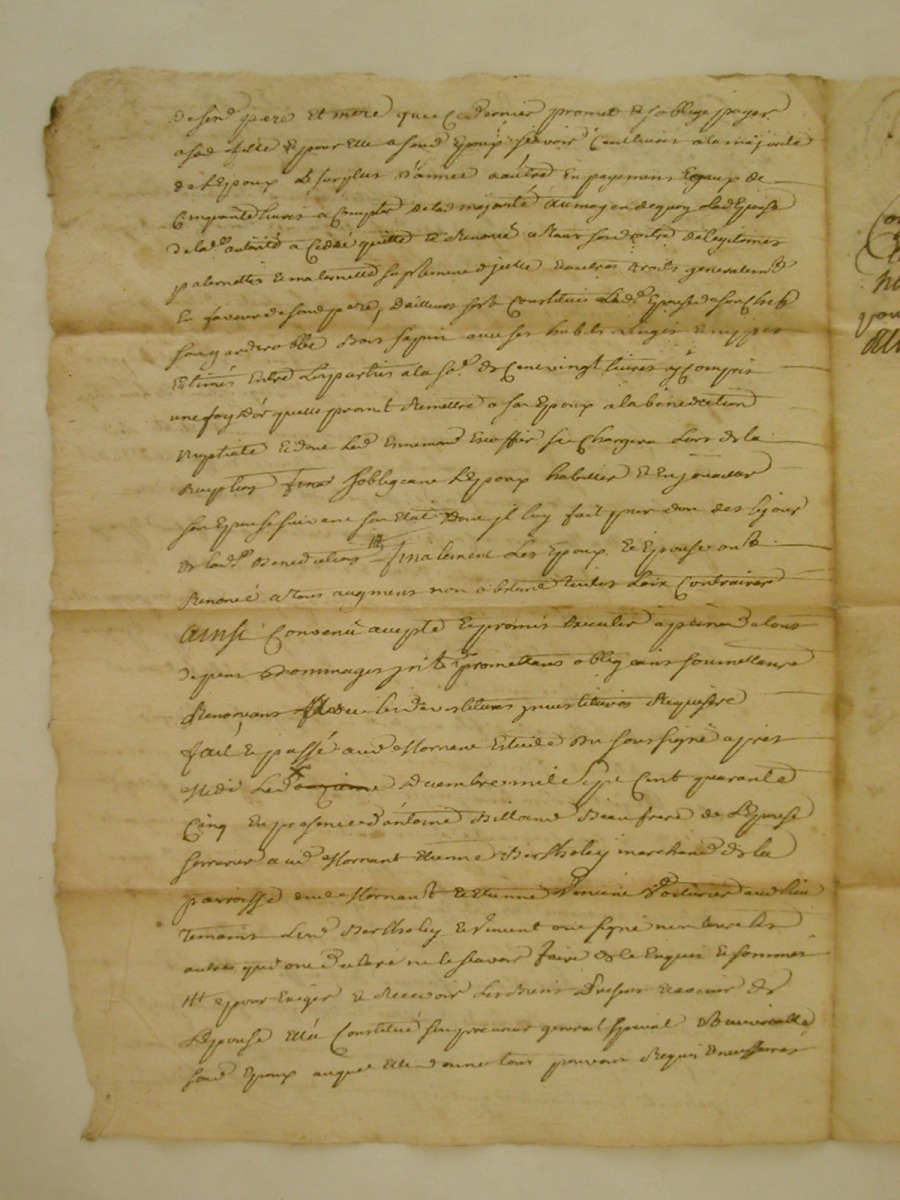 desd. pere et mere que ce dernier promet et s'oblige payer
a sad. fille et pour elle a sond. Epoux sçavoir Cent livres a la majorité
de l'Epoux le surplus d'année a autre en payemens Egaux de
Cinquante livres a Compter de lad. majorité au moyen de quoy lad. Epouse
de lad. autorité a Cedé quitté et Renoncé a tous sesd. droits de legitimes
paternelle et maternelle suplement d'jcelle et autres droits generalement
En faveur de sond. pere, D'ailleurs s'est Constituée lad. Epouse de son Chef
son garderobbe Bois sapin avec ses habits linges et nippes
Estimés Entre les parties a la so.e de Cent vingt livres y Compris
une Croix d'or quelle promet Remettre a son Epoux a la benediction
Nuptiale et dont led. Ennemond se Chargera lors de la
Reception s'obligeant l'Epoux habiller et Enjoailler
son Epouse suivant son Etat dont jl luy fait pur don des le jour
de lad. Benediction finalement les Epoux et Epouse ont
Renoncé a tous augment non obstant toutes loix Contraires
Ainsi Convenu accepté et promis Executer a peine de tous
depens dommages jnt. promettans obligeans soumettans
Renonçans
fait et passé aud. Mornant Estude du soussigné apres
Midi le decembre mil Sept Cent quarante
Cinq En presence d'antoine Billand Beau frere de l'Epouse
serrurier aud. Mornant Etienne Bertholey marchand de la
parroisse dud. Mornant et Etienne Vincent Voiturier aud. lieu
temoins lesd. Bertholey et Vincent ont signé non les
autres qui ont declaré ne le sçavoir faire de ce Enquis et sommés
Et pour Exiger et Recevoir les Biens presens et avenir de
l'Epouse Elle a Constitué son procureur general special
sond. Epoux auquel Elle donne tous pouvoirs Requis et necessaires